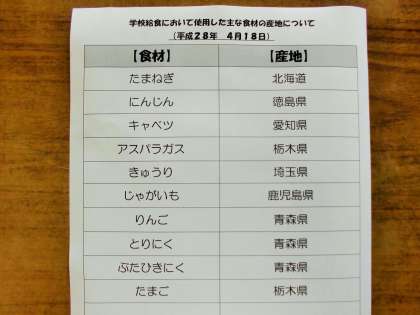 学校給食において使用した主な食材の産地について
(平成28年 4月18日)
【食材】 【産地】
たまねぎ 北海道
にんじん 徳島県
キャベツ 愛知県
アスパラガス 栃木県
きゅうり 埼玉県
じゃがいも 鹿児島県
りんご 青森県
とりにく 青森県
ぶたひきにく 青森県
たまご 栃木県